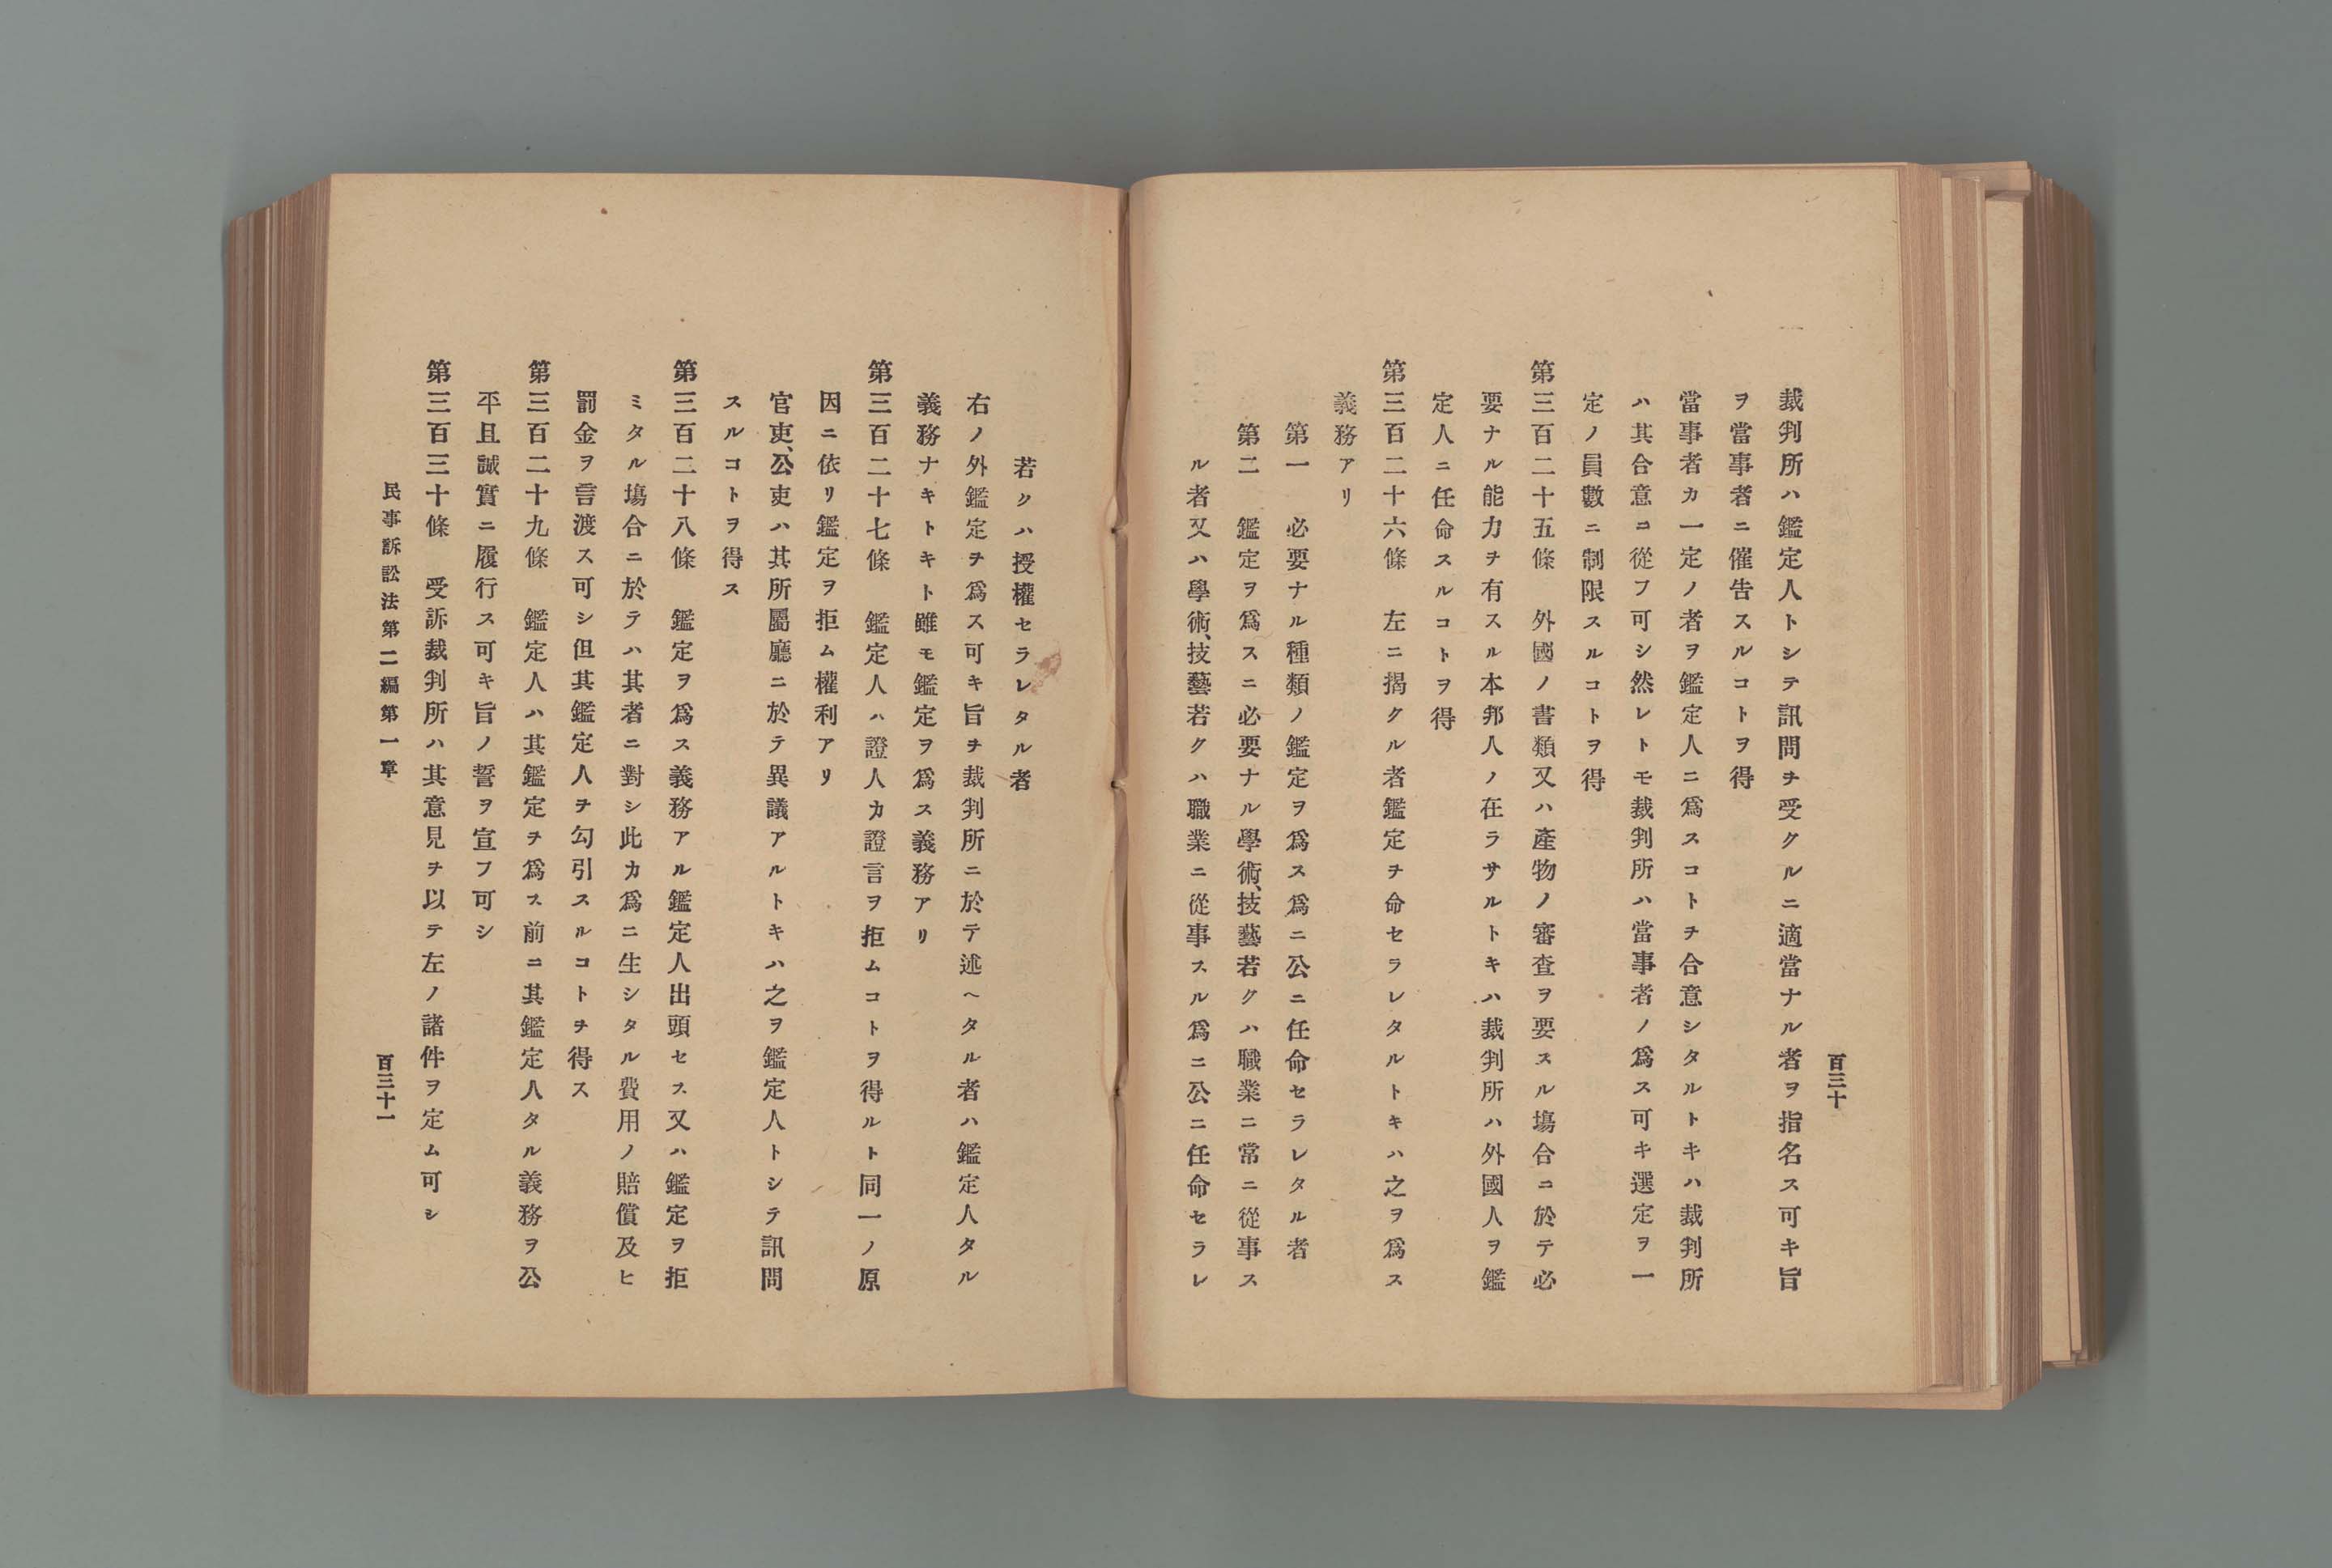 百三十
裁判所ハ鑑定人トシテ訊問ヲ受クルニ適當ナル者ヲ指名ス可キ旨
ヲ當事者ニ催告スルコトヲ得
當事者カ一定ノ者ヲ鑑定人ニ爲スコトヲ合意シタルトキハ裁判所
ハ其合意ニ從フ可シ然レトモ裁判所ハ當事者ノ爲ス可キ選定ヲ一
定ノ員數ニ制限スルコトヲ得
第三百二十五條　外國ノ書類又ハ產物ノ審査ヲ要スル塲合ニ於テ必
要ナル能力ヲ有スル本邦人ノ在ラサルトキハ裁判所ハ外國人ヲ鑑
定人ニ任命スルコトヲ得
第三百二十六條　左ニ揭クル者鑑定ヲ命セラレタルトキハ之ヲ爲ス
義務アリ
第一　必要ナル種類ノ鑑定ヲ爲ス爲ニ公ニ任命セラレタル者
第二　鑑定ヲ爲スニ必要ナル學術、技藝若クハ職業ニ常ニ從事ス
ル者又ハ學術、技藝若クハ職業ニ從事スル爲ニ公ニ任命セラレ
若クハ授權セラレタル者
右ノ外鑑定ヲ爲ス可キ旨ヲ裁判所ニ於テ述ヘタル者ハ鑑定人タル
義務ナキトキト雖モ鑑定ヲ爲ス義務アリ
第三百二十七條　鑑定人ハ證人カ證言ヲ拒ムコトヲ得ルト同一ノ原
因ニ依リ鑑定ヲ拒ム權利アリ
官吏、公吏ハ其所屬廳ニ於テ異議アルトキハ之ヲ鑑定人トシテ訊問
スルコトヲ得ス
第三百二十八條　鑑定ヲ爲ス義務アル鑑定人出頭セス又ハ鑑定ヲ拒
ミタル塲合ニ於テハ其者ニ對シ此カ爲ニ生シタル費用ノ賠償及ヒ
罰金ヲ言渡ス可シ但其鑑定人ヲ勾引スルコトヲ得ス
第三百二十九條　鑑定人ハ其鑑定ヲ爲ス前ニ其鑑定人タル義務ヲ公
平且誠實ニ履行ス可キ旨ノ誓ヲ宣フ可シ
第三百三十條　受訴裁判所ハ其意見ヲ以テ左ノ諸件ヲ定ム可シ
民事訴訟法第二編第一章
百三十一